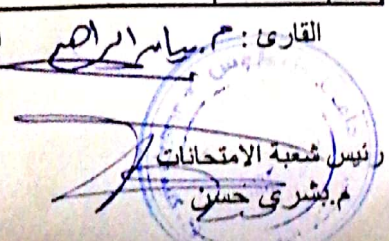 القارئ : م. ياسر ابراهيم
رئيس شعبة الامتحانات
م.بشرى حسن